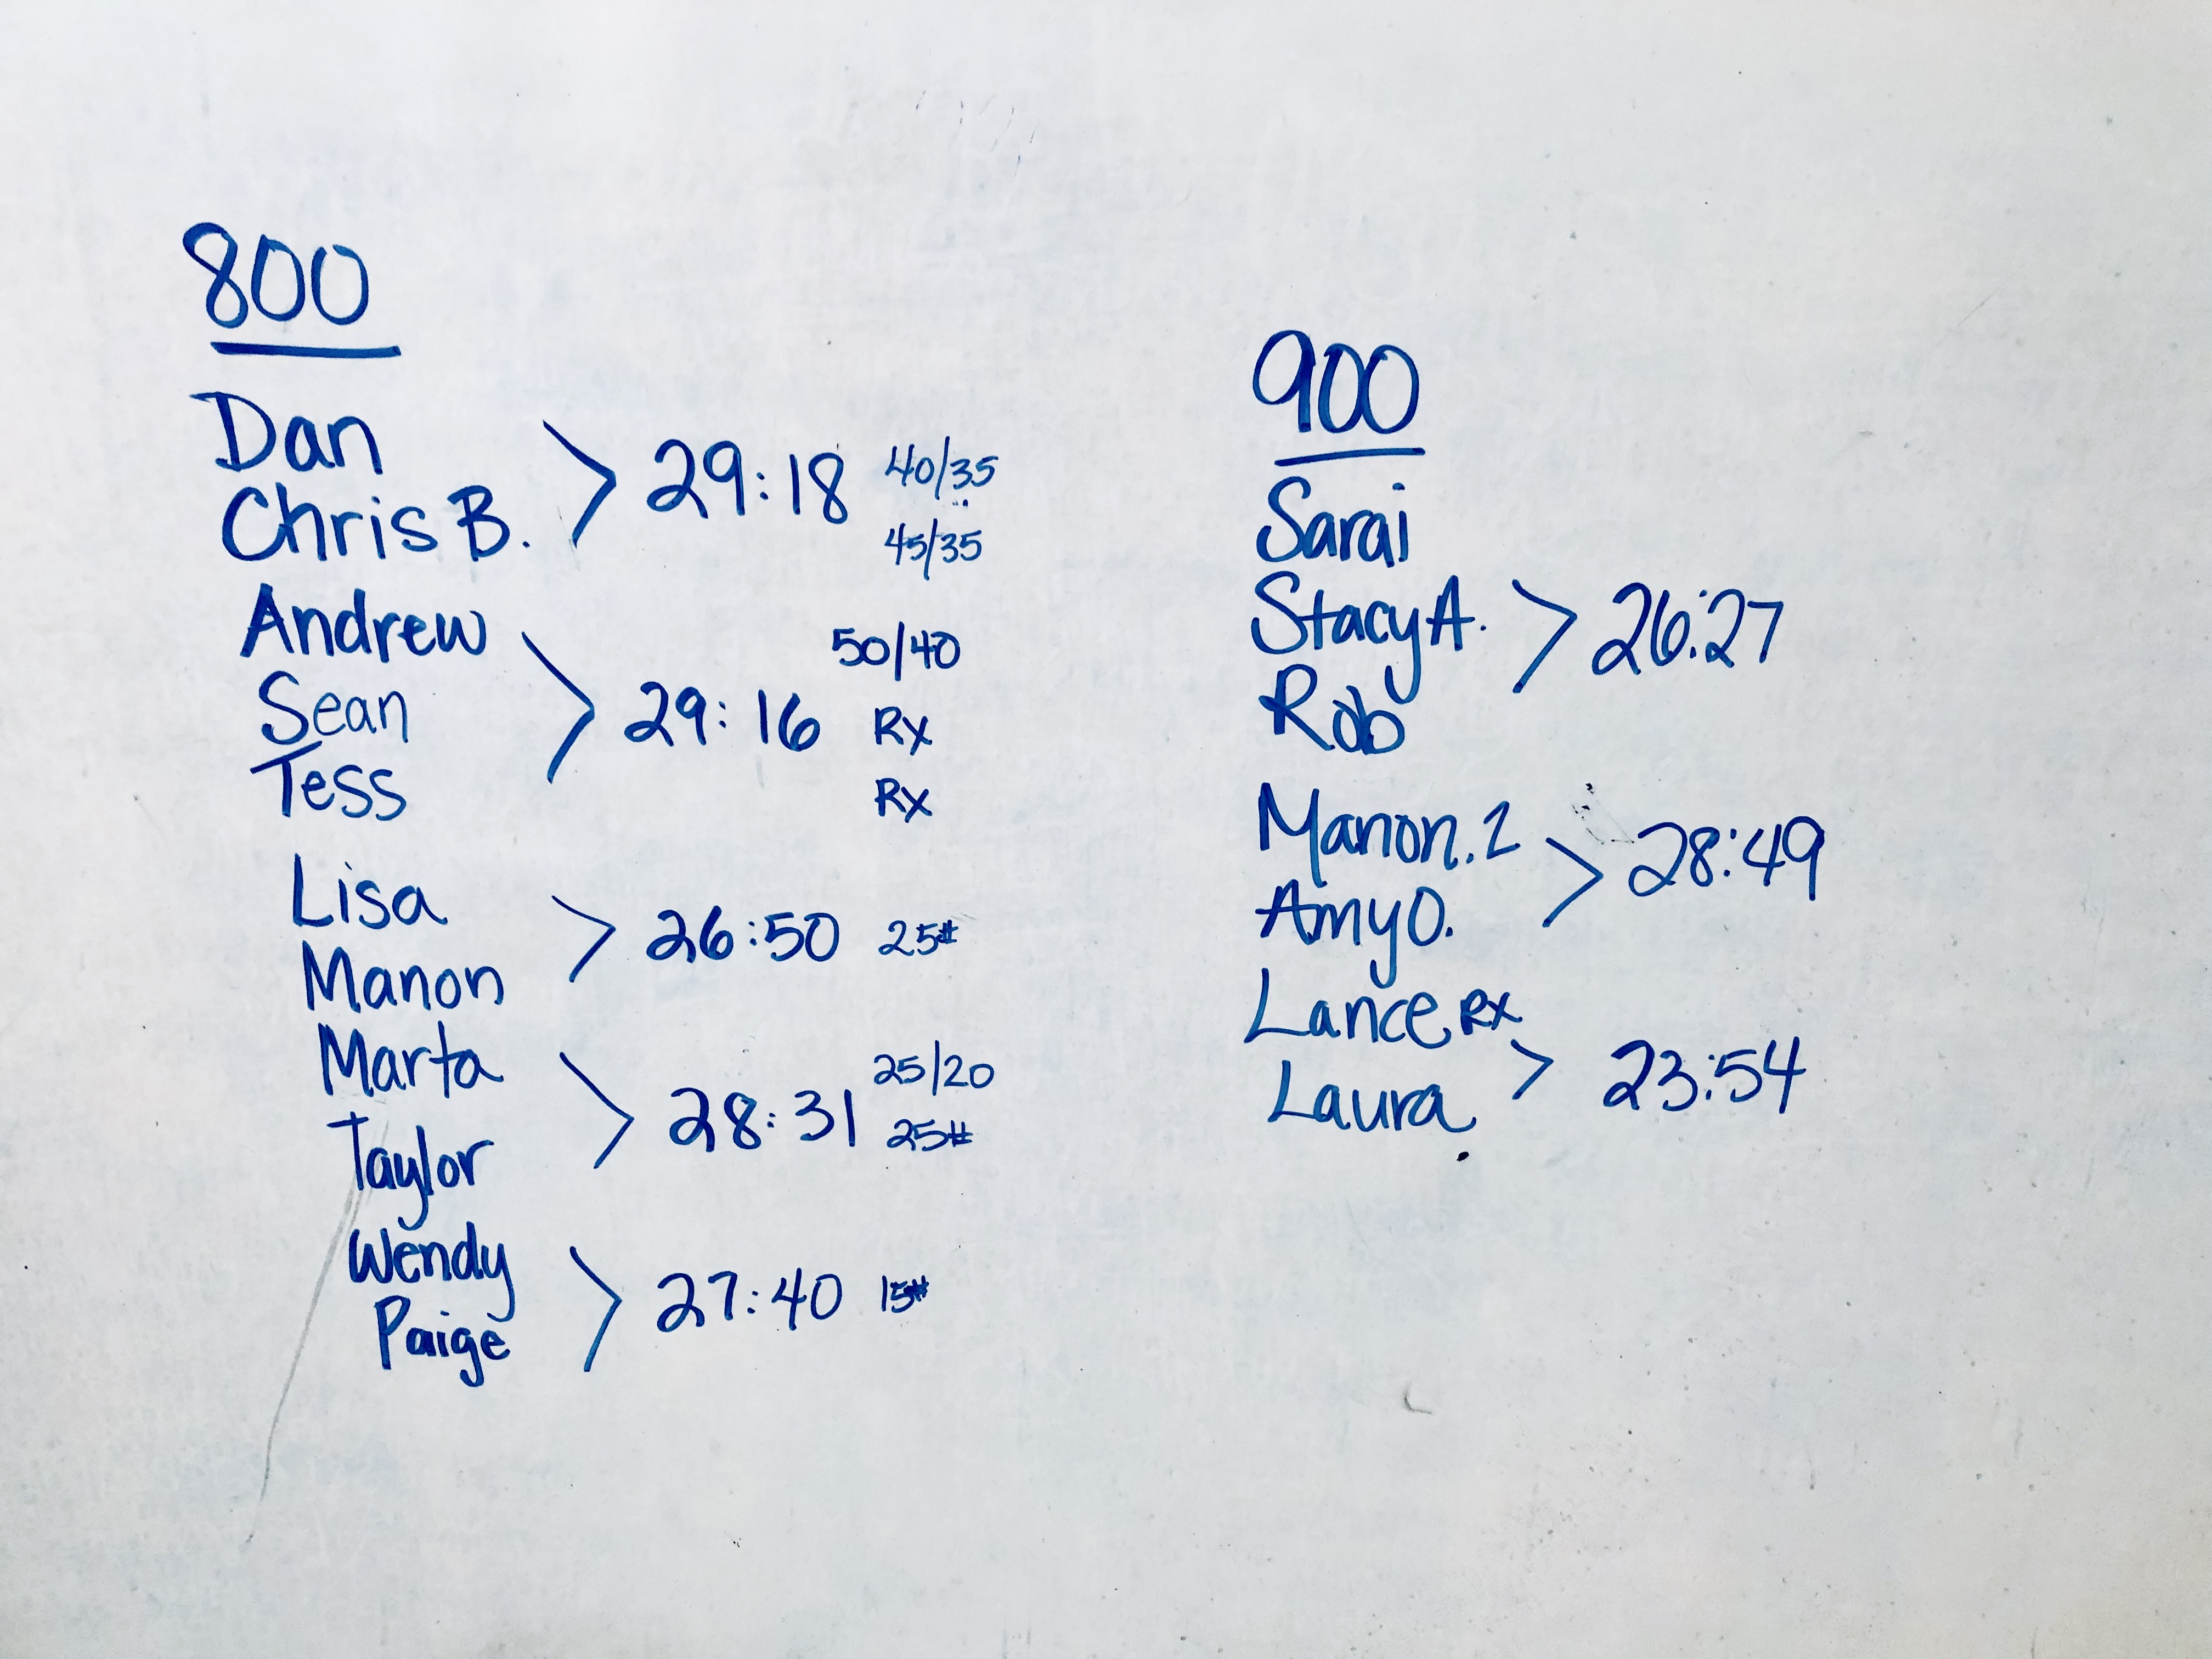 800
Dan
Chris B.
29:18 40/35
45/35
Andrew
Sean
Tess
50/40
29:16 Rx
Rx
Lisa
Manon
26:50 25#
Marta
Taylor
28:31 25/20
25#
Wendy
Paige
27:40 15#
900
Sarai
Stacy A.
Rob
26:27
Manon.2
Amy O.
28:49
Lance RX
Laura
23:54